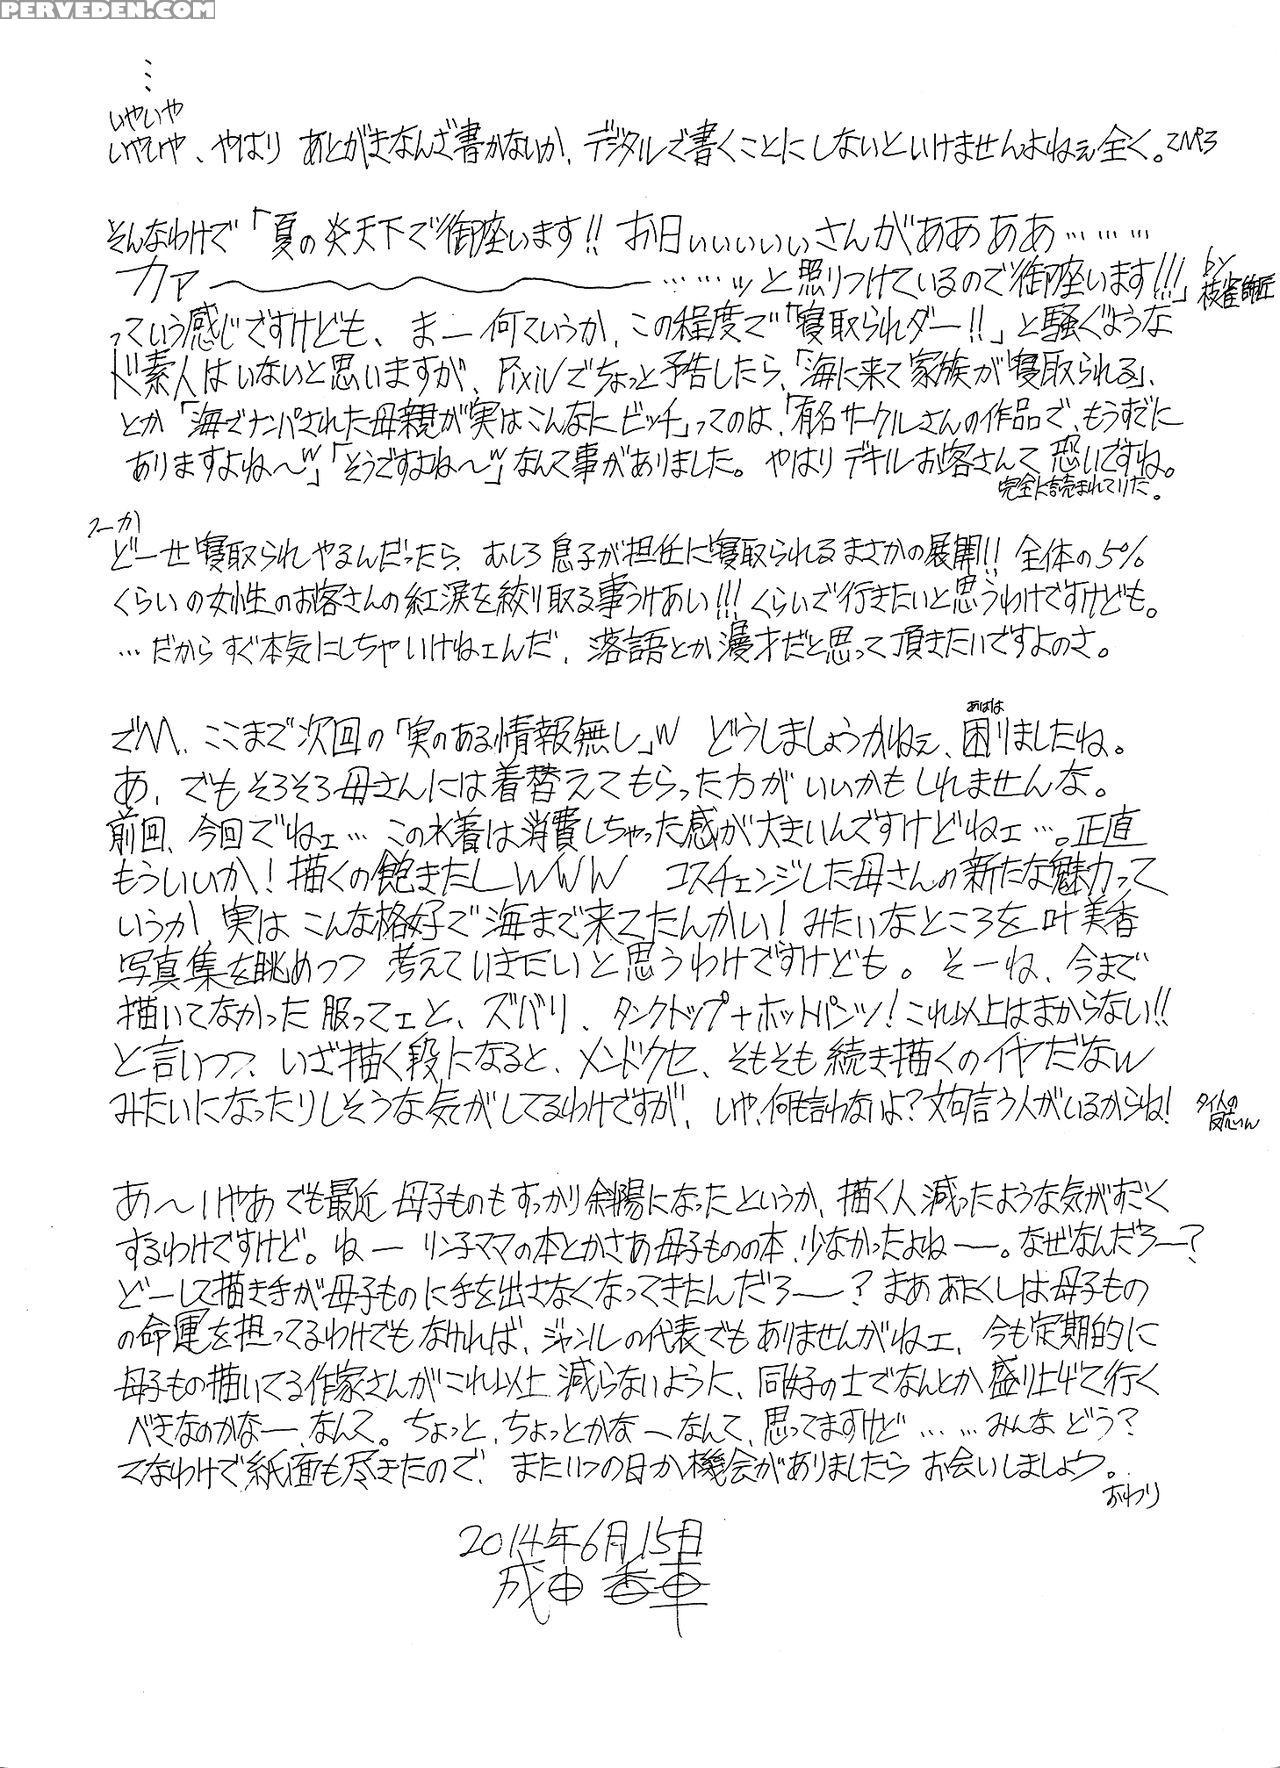 PERVEDEN.COM
…
いやいや
いやいや、やはり あとがきなんざ書かないか、デジタルで書くことにしないといけませんよねぇ全く。
そんなわけで「夏の炎天下で御座います!! お日ぃぃぃぃぃさんがああああ………
カァ〜〜〜……ッと照りつけているので御座います!!!」by枝雀師匠
っていう感じですけども、まー何ていうか、この程度で「寝取られダー!!」と騒ぐような
ド素人はいないと思いますが、Pixivでちょっと予告したら、「海に来て家族が寝取られる」、
とか「海でナンパされた母親が実はこんなにビッチ」ってのは、「有名サークルさんの作品で、もうすでに
ありますよね〜w」「そうですよね〜w」なんて事がありました。やはりデキルお客さんて恐いですね。
完全に読まれてりだ。
つーか
どーせ寝取られやるんだったら、むしろ息子が担任に寝取られるまさかの展開!! 全体の5%
くらいの女性のお客さんの紅涙を絞り取る事うけあい!!! くらいで行きたいと思うわけですけども。
…だからすぐ本気にしちゃいけねェんだ、落語とか漫才だと思って頂きたいですよのさ。
でM、ここまで次回の「実のある情報無し」w どうしましょうかねぇ、困りましたね。
あはは
あ、でもそろそろ母さんには着替えてもらった方がいいかもしれませんな。
前回、今回でねェ…この水着は消費しちゃった感が大きいんですけどねェ…。正直
もういいか!描くの飽きたしwww コスチェンジした母さんの新たな魅力って
いうか 実はこんな格好で海まで来てたんかい!みたいなところを叶美香
写真集を眺めつつ 考えていきたいと思うわけですけども。そーね、今まで
描いてなかった服ってェと、ズバリ、タンクトップ+ホットパンツ!これ以上はまからない!!
と言いつつ、いざ描く段になると、メンドクセ、そもそも続き描くのイヤだなw
みたいになったりしそうな気がしてるわけですが、いや、何も言わないよ?文句言う人がいるからね!
あ〜いやあ でも最近 母子ものもすっかり斜陽になったというか、描く人減ったような気がすごく
するわけですけど。ねー リン子ママの本とかさあ母子ものの本、少なかったよねー。なぜなんだろー?
どーして描き手が母子ものに手を出さなくなってきたんだろー?まああたくしは母子もの
の命運を担ってるわけでもなければ、ジャンルの代表でもありませんがねェ、今も定期的に
母子もの描いてる作家さんがこれ以上減らないように、同好の士でなんとか盛り上げて行く
べきなのかなー、なんて。ちょっと、ちょっとかなーなんて、思ってますけど……みんなどう?
てなわけで紙面も尽きたので、またいつの日か機会がありましたらお会いしましょう。
おわり
2014年6月15日
成田香車